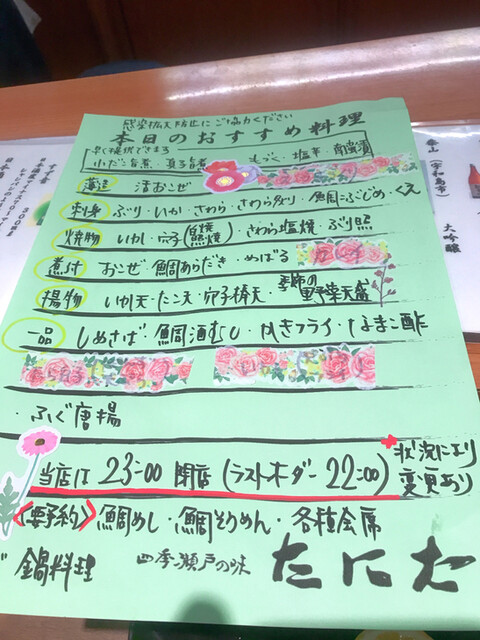 感染拡大防止にご協力ください
本日のおすすめ料理
早く提供できます
小だこ旨煮・真子旨煮 もづく・塩辛・南蛮漬
薄造 活おこぜ
刺身 ぶり・いか・さわら・さわら炙り・鯛ぶじめ・くえ
焼物 いか・穴子(照焼)・さわら塩焼・ぶり照
煮付 おこぜ・鯛あらだき・めばる
揚物 いか天・たこ天・穴子精天・季節の野菜天盛
一品 しめさば・鯛酒むし・かきフライ・なまこ酢
・ふぐ唐揚
当店は 23:00 閉店 (ラストオーダー 22:00) 状況により変更あり
<要予約> 鯛めし・鯛そうめん・各種会席
鍋料理 四季瀬戸の味 たにた
(宇和島市)
大吟醸